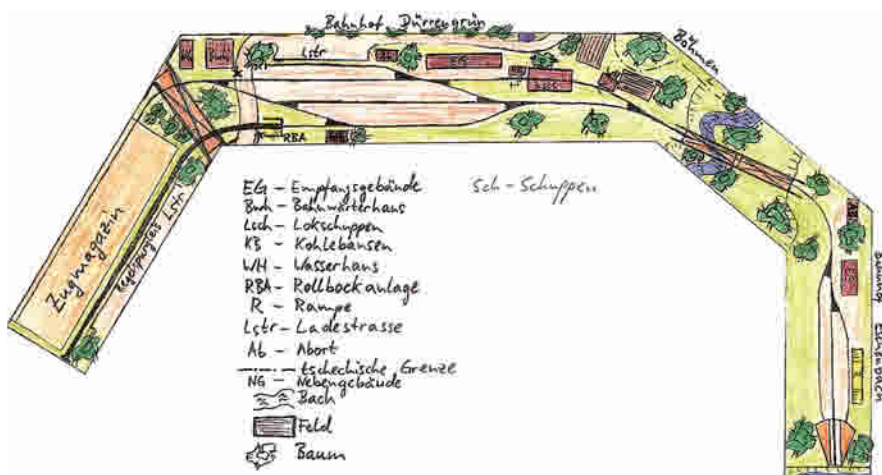 Bahnhof Dürrengrün
Lstr
EG
RBA
Böhmen
Zugmagazin
Regelspuriges Lstr
EG
Bahnhof Eschenbach
EG - Empfangsgebäude
Sch - Schuppen
Bwh - Bahnwärterhaus
Lsch - Lokschuppen
KB - Kohlebansen
WH - Wasserhaus
RBA - Rollbockanlage
R - Rampe
Lstr - Ladestrasse
Ab - Abort
tschechische Grenze
NG - Nebengebäude
Bach
Feld
Baum